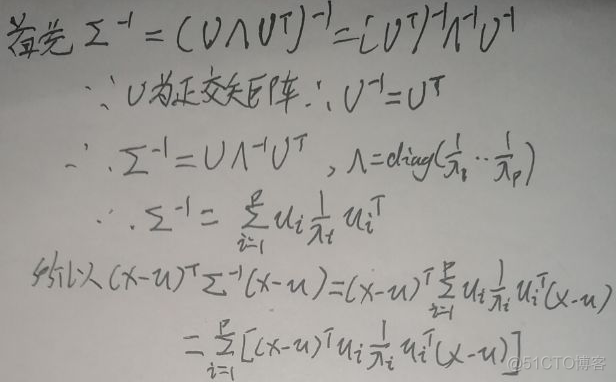 首先 Σ⁻¹ = (U Λ Uᵀ)⁻¹ = (Uᵀ)⁻¹Λ⁻¹U⁻¹
∵ U为正交矩阵 ∴ U⁻¹ = Uᵀ
∴ Σ⁻¹ = U Λ⁻¹ Uᵀ , Λ = diag(1/λ₁ ·· 1/λₚ)
∴ Σ⁻¹ = Σᵢ₌₁ᵖ uᵢ 1/λᵢ uᵢᵀ
所以 (x-u)ᵀ Σ⁻¹ (x-u) = (x-u)ᵀ Σᵢ₌₁ᵖ uᵢ 1/λᵢ uᵢᵀ (x-u)
= Σᵢ₌₁ᵖ [(x-u)ᵀ uᵢ 1/λᵢ uᵢᵀ (x-u)]
@51CTO博客